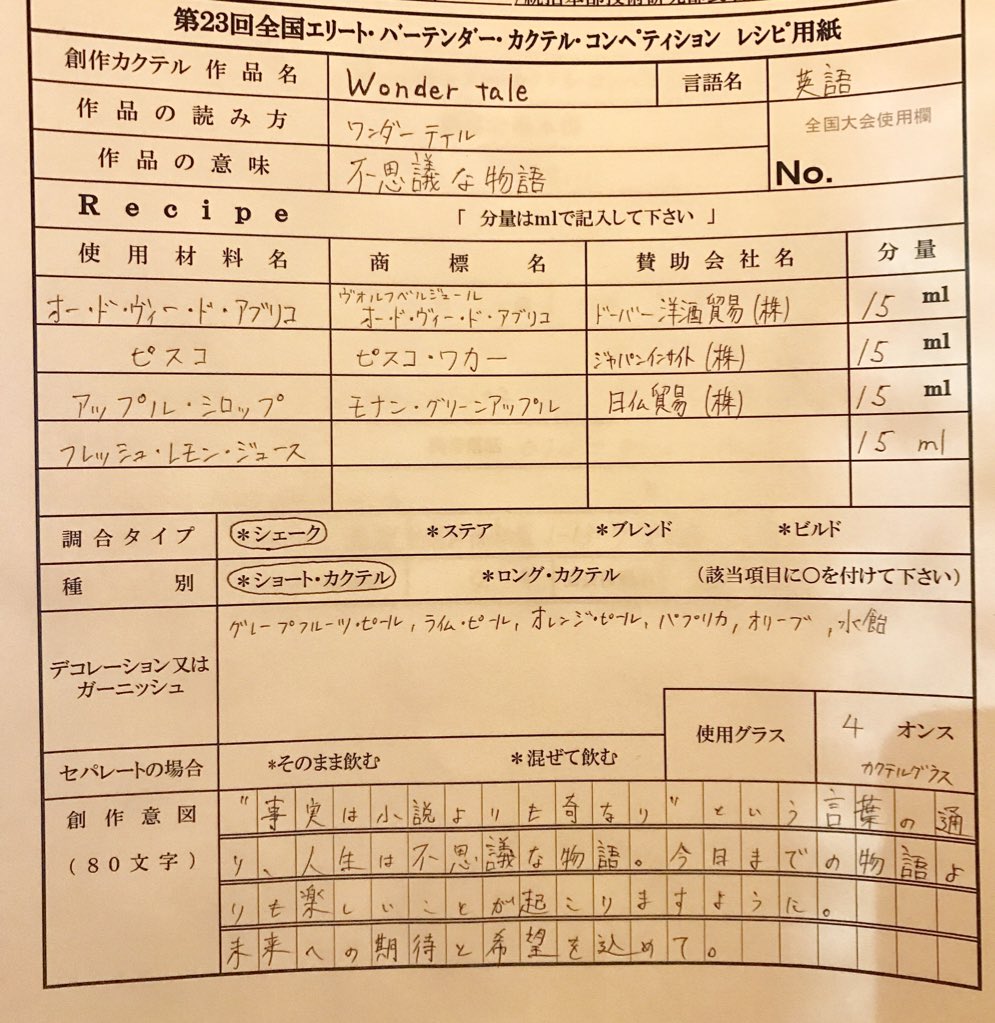 第23回全国エリート・バーテンダー・カクテル・コンペティション レシピ用紙
創作カクテル 作品名 Wonder tale 言語名 英語
作品の読み方 ワンダーテイル 全国大会使用欄
作品の意味 不思議な物語 No.
Recipe 「 分量はmlで記入して下さい 」
使用材料名 商標名 賛助会社名 分量
ヴォルフベルジュール
オー・ド・ヴィー・ド・アブリコ オード・ヴィー・ド・アブリコ ドーバー洋酒貿易(株) 15 ml
ピスコ ピスコ・ワカー ジャパンインサイト(株) 15 ml
アップル・シロップ モナン・グリーンアップル 日仏貿易(株) 15 ml
フレッシュ・レモン・ジュース 15 ml
調合タイプ *シェーク *ステア *ブレンド *ビルド
種別 *ショート・カクテル *ロング・カクテル (該当項目に○を付けて下さい)
デコレーション又は
ガーニッシュ
グレープフルーツ・ピール, ライム・ピール, オレンジ・ピール, パプリカ, オリーブ, 水飴
使用グラス 4 オンス
カクテルグラス
セパレートの場合 *そのまま飲む *混ぜて飲む
創作意図
(80文字)
"事実は小説よりも奇なり"という言葉の通
り、人生は不思議な物語。今日までの物語よ
りも楽しいことが起こりますように。
未来への期待と希望を込めて。